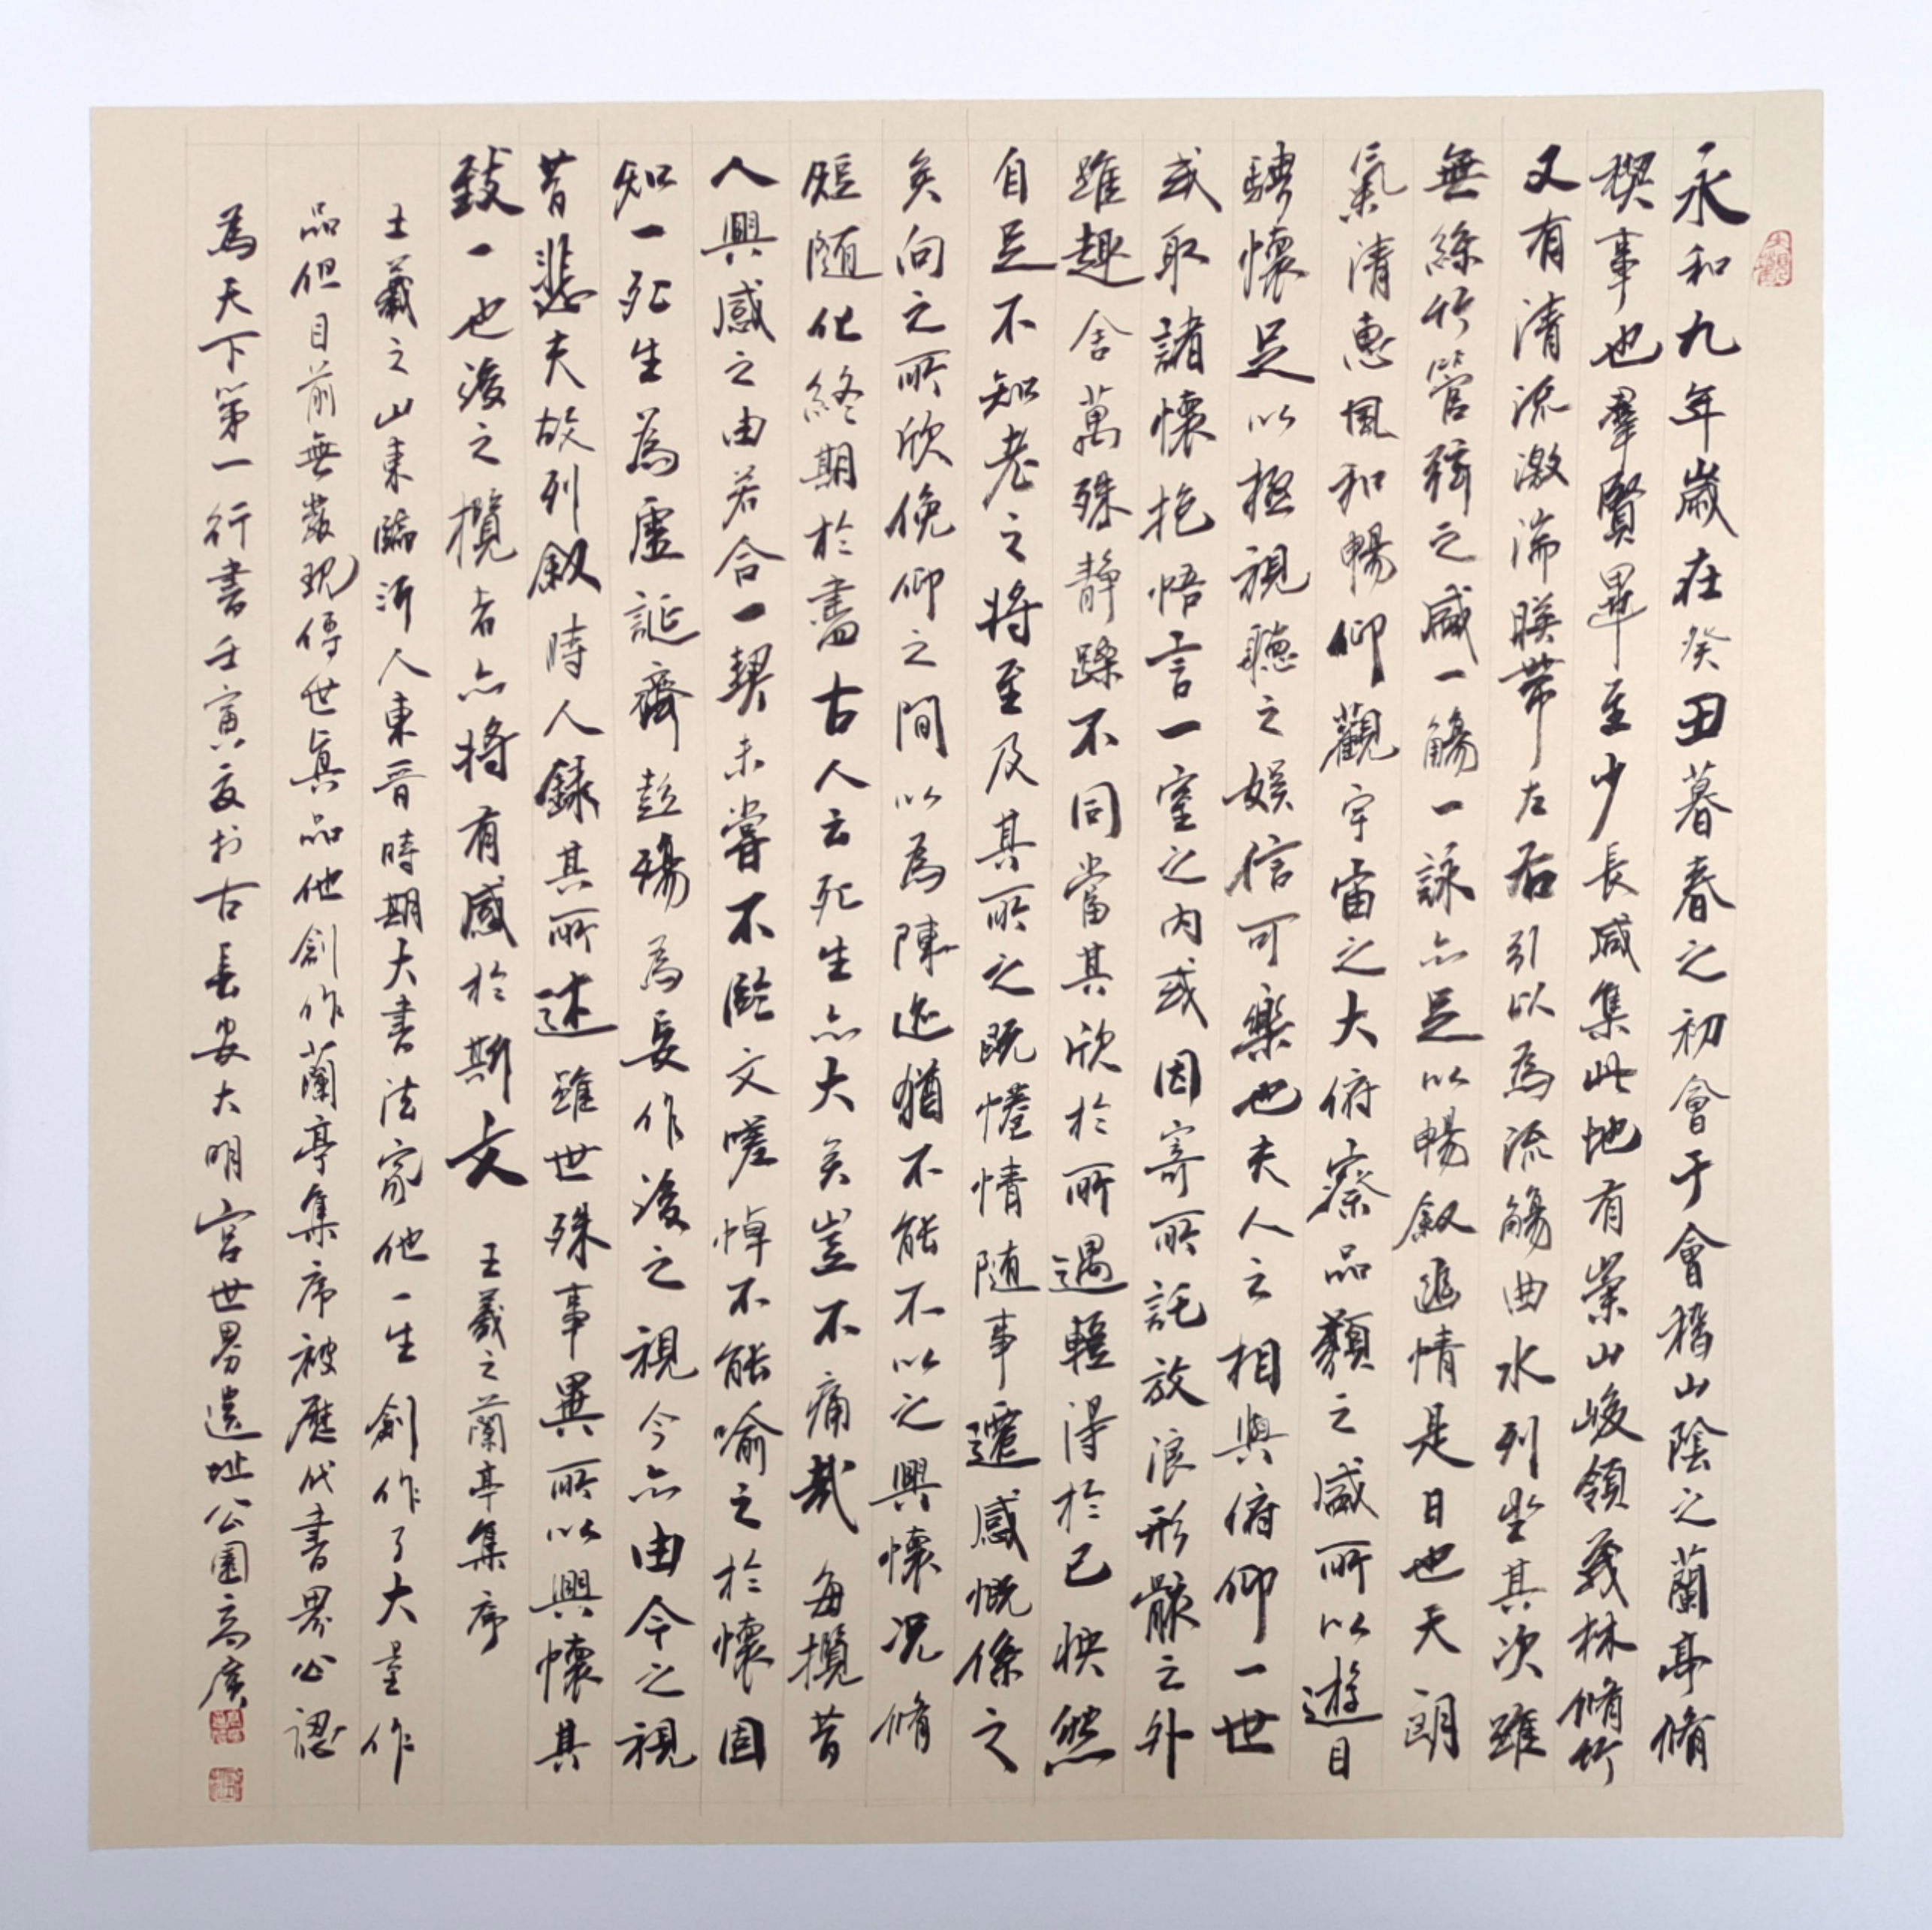 永和九年歲在癸丑暮春之初會于會稽山陰之蘭亭脩
稧事也羣賢畢至少長咸集此地有崇山峻領茂林脩竹
又有清流激湍暎帶左右引以為流觴曲水列坐其次雖
無絲竹管弦之盛一觴一詠亦足以暢敘幽情是日也天朗
氣清惠風和暢仰觀宇宙之大俯察品類之盛所以遊目
騁懷足以極視聽之娛信可樂也夫人之相與俯仰一世
或取諸懷抱悟言一室之內或因寄所託放浪形骸之外
雖趣舍萬殊靜躁不同當其欣於所遇輕得於已怏然
自足不知老之將至及其所之既惓情隨事遷感慨係之
矣向之所欣俛仰之間以為陳迹猶不能不以之興懷況脩
短隨化終期於盡古人云死生亦大矣豈不痛哉每攬昔
人興感之由若合一契未嘗不臨文嗟悼不能喻之於懷固
知一死生為虛誕齊彭殤為妄作後之視今亦由今之視
昔悲夫故列敘時人錄其所述雖世殊事異所以興懷其
致一也後之攬者亦將有感於斯文 王羲之蘭亭集序
王羲之山東臨沂人東晉時期大書法家他一生創作了大量作
品但目前無發現傳世真品他創作蘭亭集序被歷代書界公認
為天下第一行書壬寅夏於古長安大明宮世界遺址公園高廣